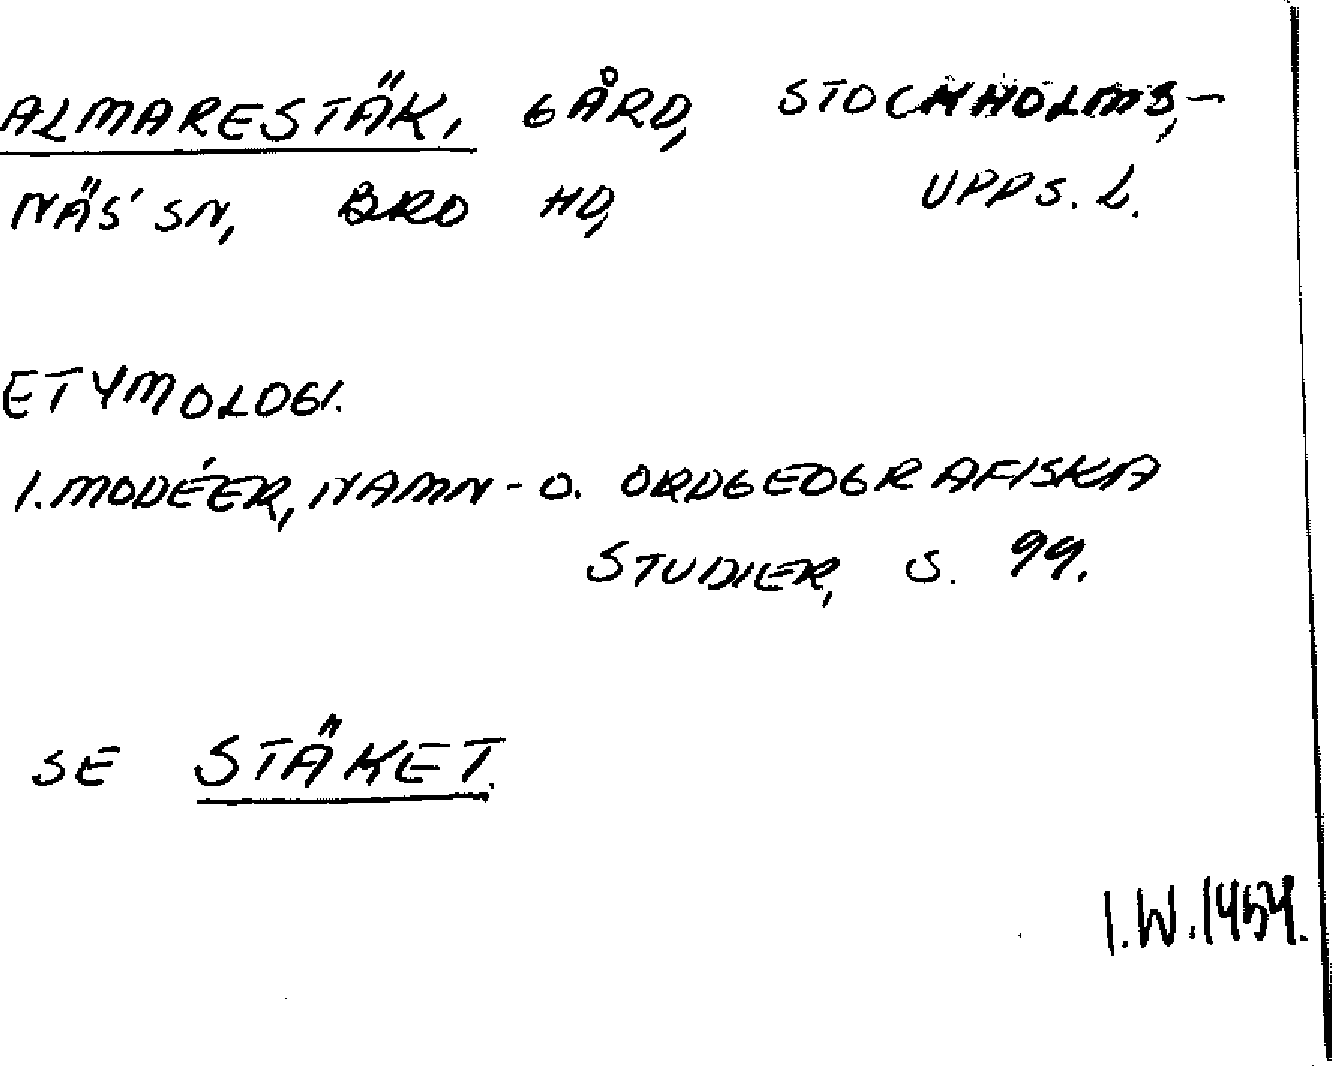 ALMARESTÄK, GÅRD, STOCKHOLMS,-
NÄS' SN, BRO HD, UPPS. L.
ETYMOLOGI.
I. MODÉER, NAMN- O. ORDGEOGRAFISKA
STUDIER, S. 99.
SE STÄKET.
I.W. 1954.